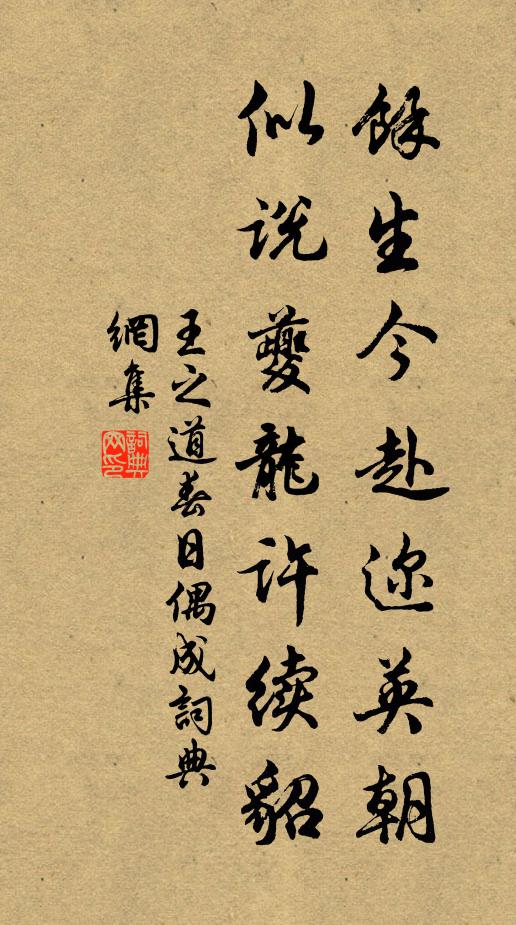 餘生今赴迩英朝
似説夔龍許续貂
王之道春日偶成詞典
網集
詞典网印